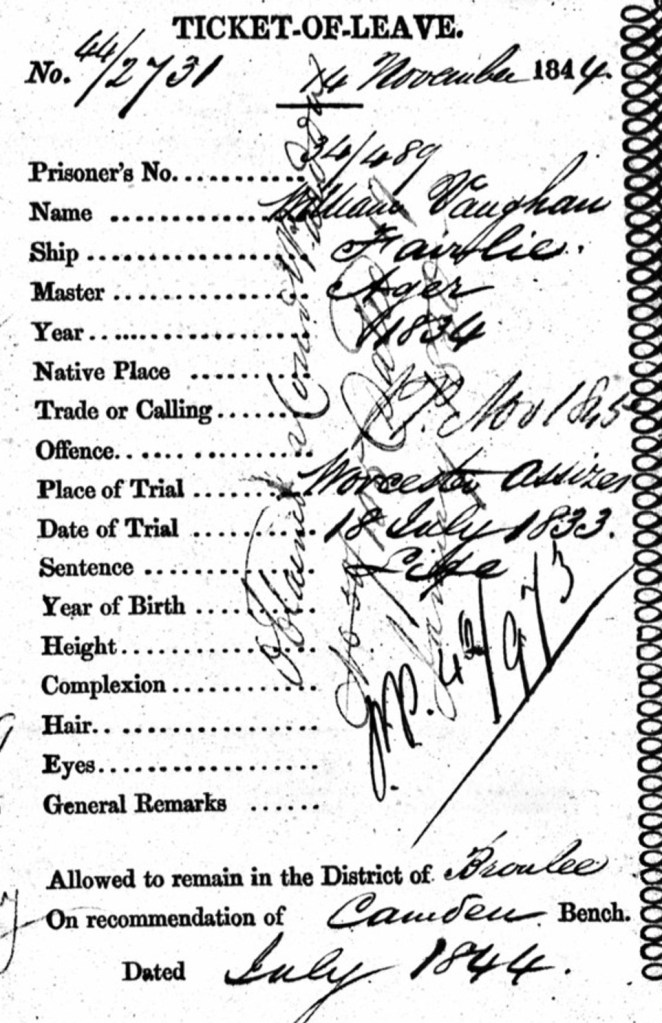 TICKET-OF-LEAVE.
No. 44/2731 14 November 1844.
Prisoner's No. 34/489
Name William Vaughan
Ship Fairlie.
Master Ager
Year 1834
Native Place
Trade or Calling
Nov 1845
Offence
Place of Trial Worcester Assizes
Date of Trial 18 July 1833.
Sentence Life
Year of Birth
Height
Complexion
Hair
Eyes
General Remarks
Allowed to remain in the District of Broulee
On recommendation of Camden Bench.
Dated July 1844.